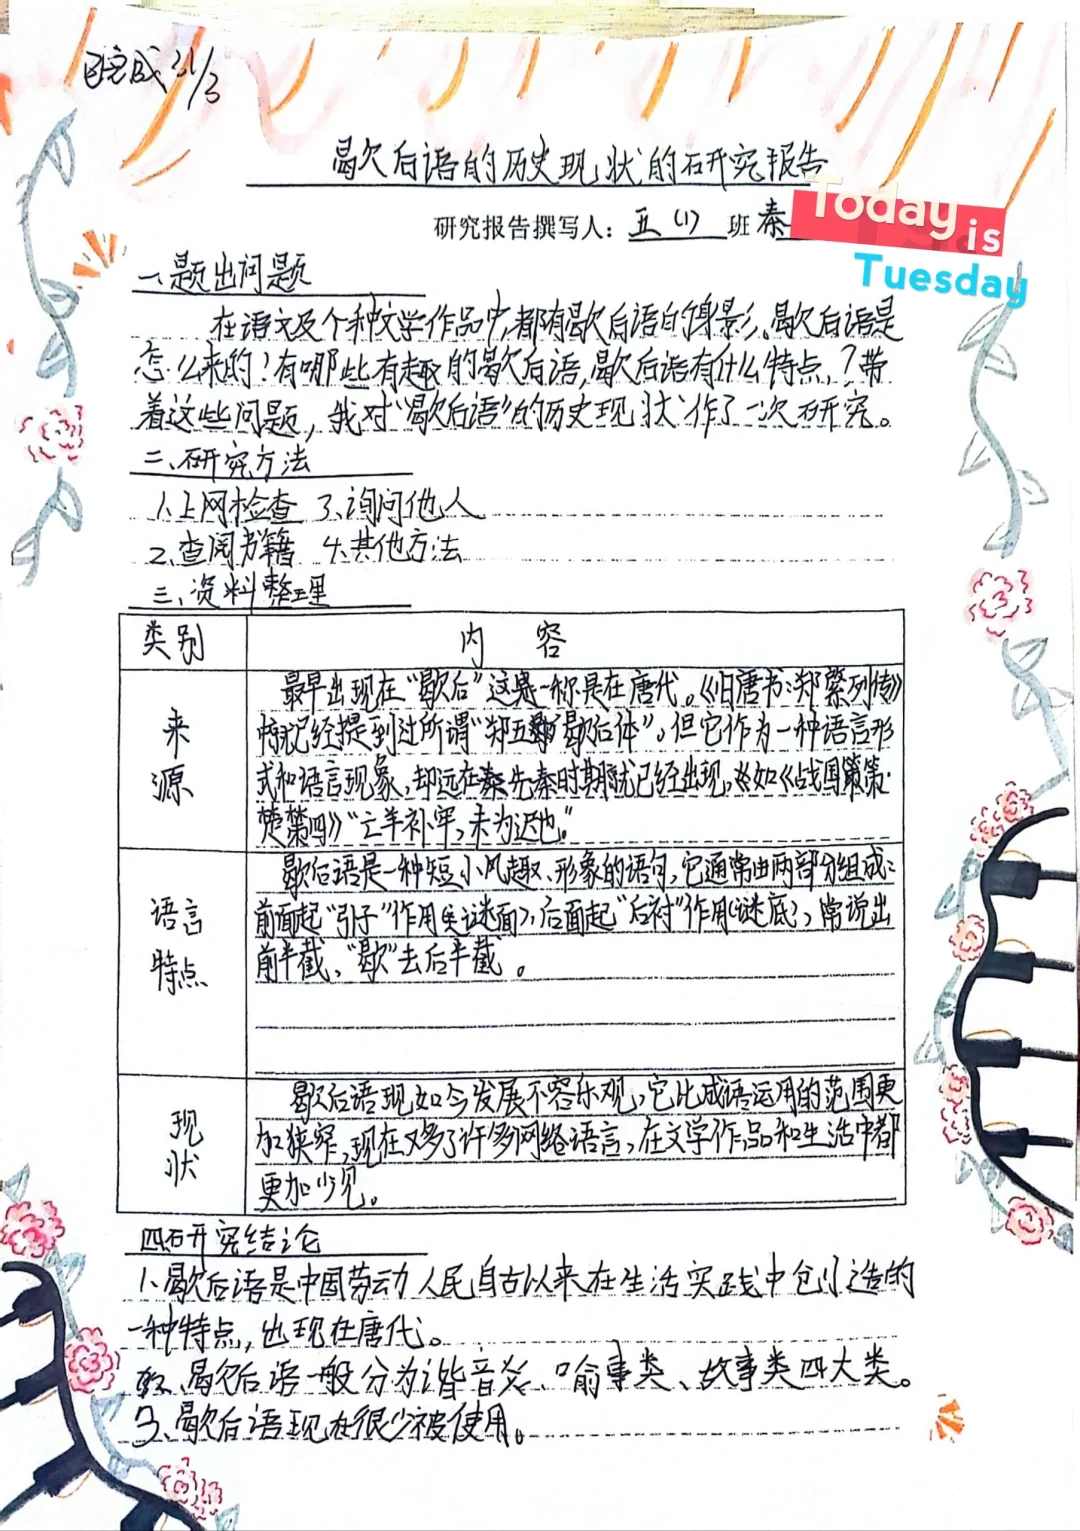 已完成 21/3
歇后语的历史现状的研究报告
研究报告撰写人：五（1）班秦
Today is
Tuesday
一、题出问题
在语文及个种文学作品中,都有歇后语的身影、歇后语是
怎么来的！有哪些有趣的歇后语,歇后语有什么特点,？带
着这些问题，我对“歇后语”的历史现状作了一次研究。
二、研究方法
1.上网检查 3、询问他人
2、查阅书籍 4、其他方法
三、资料整理
类别 内容
来源
最早出现在“歇后”这是一称是在唐代。《旧唐书:郑綮列传》
就已经提到过所谓“郑五歇后体”。但它作为一种语言形
式和语言现象,却远在先秦时期就已经出现,如《战国策·
楚策四》“亡羊补牢,未为迟也。”
语言
特点
歇后语是一种短小风趣、形象的语句,它通常由两部分组成:
前面起“引子”作用(谜面),后面起“后衬”作用(谜底),常说出
前半截,“歇”去后半截。
现状
歇后语现如今发展不容乐观,它比成语运用的范围更
加狭窄,现在又多了许多网络语言,在文学作品和生活中都
更加少见。
四研究结论
1、歇后语是中国劳动人民自古以来在生活实践中创造的
一种特点,出现在唐代。
歇后语一般分为谐音类、喻事类、故事类四大类。
3、歇后语现在很少被使用。